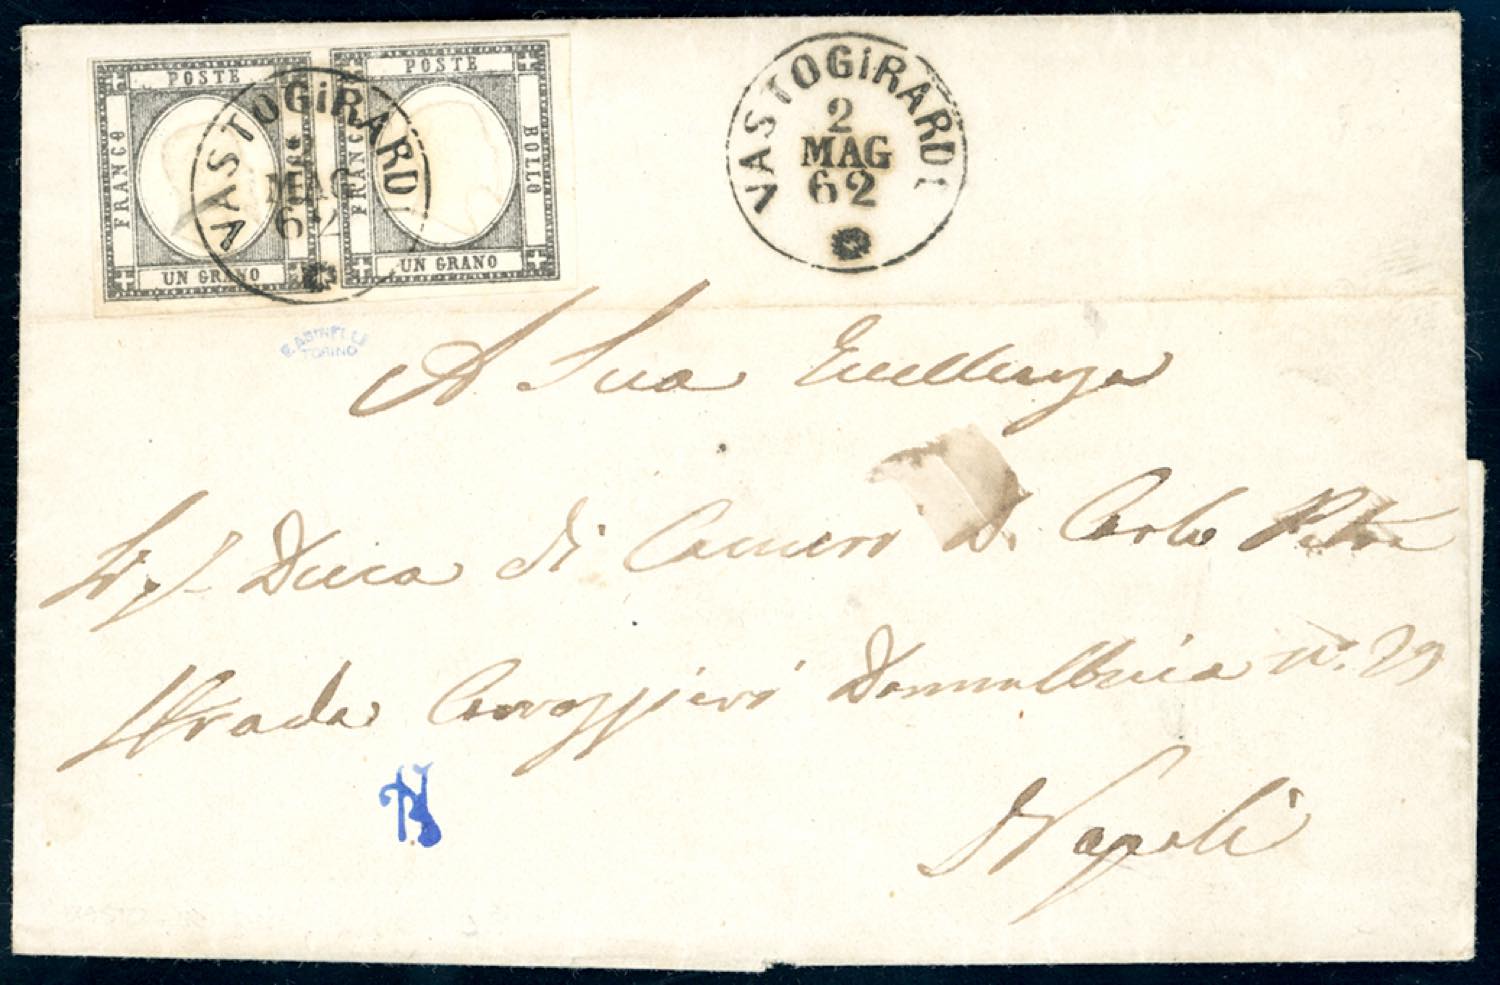 POSTE
FRANCO
UN GRANO
POSTE
FRANCO BOLLO
UN GRANO
VASTOGiRARDI
MAG
62
VASTOGiRARDI
2
MAG
62
TORINO
A Sua Eccellenza
Duca di D. Carlo
Strada n.° 29
Napoli